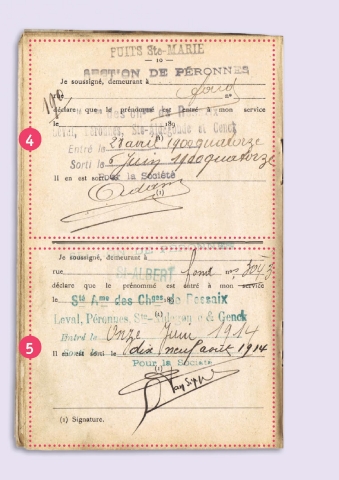 PUITS Ste-MARIE
— 10 —
SECTION DE PÉRONNES
Je soussigné, demeurant à
fond
n°
déclare que le prénommé est entré à mon service
le 189
Leval, Péronnes, Ste-Aldegonde et Genck
Entré le 28 avril 1900quatorze
Sorti le 5 Juin 1900quatorze
Il en est sorti
Pour la Société
(1)
4
Je soussigné, demeurant à
rue St-ALBERT fond n° 3043
déclare que le prénommé est entré à mon service
le Sté Ame des Chges de Ressaix
Leval, Péronnes, Ste-Aldegonde & Genck
Entré le Onze Juin 1914
Il en est sorti le dix neuf août 1914
Pour la Société
(1)
5
(1) Signature.